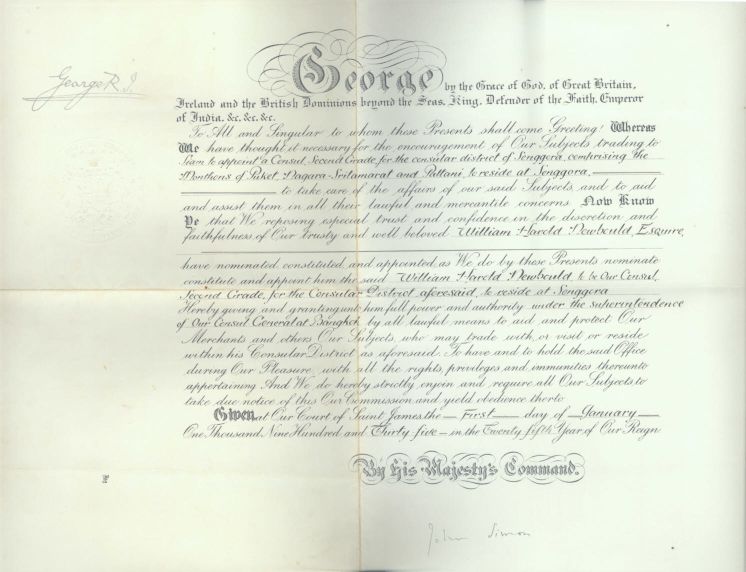 George R. I.
George by the Grace of God, of Great Britain,
Ireland and the British Dominions beyond the Seas, King, Defender of the Faith, Emperor
of India, &c. &c. &c.
To All and Singular to whom these Presents shall come Greeting! Whereas
We have thought it necessary for the encouragement of Our Subjects trading to
Siam to appoint a Consul, Second Grade, for the consular district of Senggora, comprising the
Monthons of Puket, Nagara-Sritamarat and Pattani, to reside at Senggora,
to take care of the affairs of our said Subjects and to aid
and assist them in all their lawful and mercantile concerns Now Know
Ye that We reposing especial trust and confidence in the discretion and
faithfulness of Our trusty and well beloved William Harold Newbould, Esquire,
have nominated constituted and appointed, as We do by these Presents nominate
constitute and appoint him the said William Harold Newbould, to be Our Consul,
Second Grade, for the Consular District aforesaid, to reside at Senggora
Hereby giving and granting unto him full power and authority under the superintendence
of Our Consul General at Bangkok by all lawful means to aid and protect Our
Merchants and others Our Subjects who may trade with, or visit or reside
within his Consular District as aforesaid, To have and to hold the said Office
during Our Pleasure, with all the rights, privileges and immunities thereunto
appertaining And We do hereby strictly enjoin and require all Our Subjects to
take due notice of this Our Commission and yield obedience thereto
Given at Our Court of Saint James, the First day of January
One Thousand Nine Hundred and Thirty five in the Twenty fifth Year of Our Reign
By His Majesty's Command.
John Simon